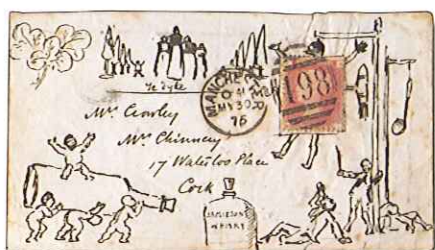 MANCHESTER
MY 30
76
498
Mr. Crowley
Mr. Chinnery
17 Waterloo Place
Cork
JAMIESONS
WHISKY